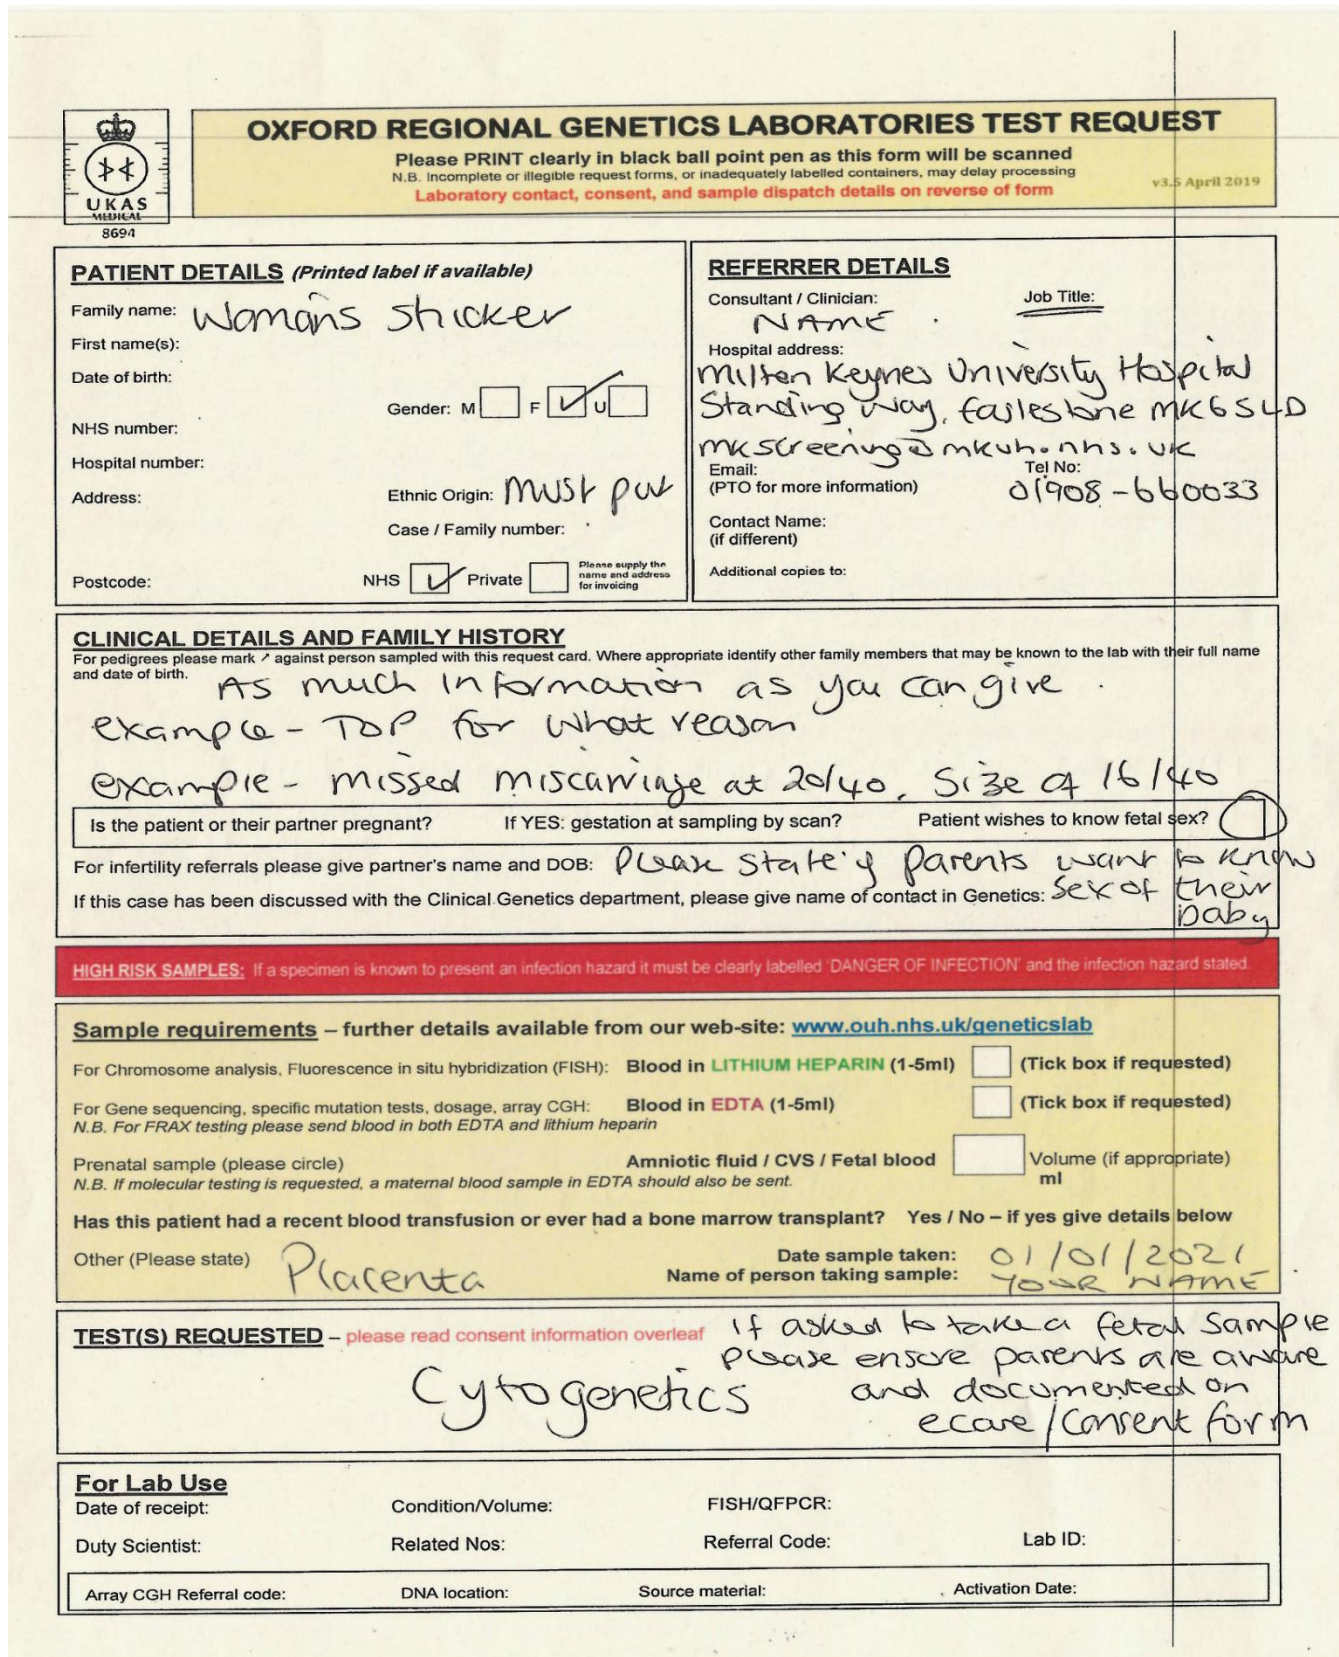 OXFORD REGIONAL GENETICS LABORATORIES TEST REQUEST
Please PRINT clearly in black ball point pen as this form will be scanned
N.B. Incomplete or illegible request forms, or inadequately labelled containers, may delay processing
Laboratory contact, consent, and sample dispatch details on reverse of form
v3.5 April 2019
UKAS
MEDICAL
8694
PATIENT DETAILS (Printed label if available)
Family name: Womans sticker
First name(s):
Date of birth:
Gender: M F U
NHS number:
Hospital number:
Address: Ethnic Origin: Must put
Case / Family number:
Postcode: NHS Private Please supply the name and address for invoicing
REFERRER DETAILS
Consultant / Clinician: Job Title:
NAME .
Hospital address:
Milton Keynes University Hospital
Standing Way, Eaglestone MK6 5LD
mkscreening@mkuh.nhs.uk
Email: Tel No:
(PTO for more information) 01908-660033
Contact Name:
(if different)
Additional copies to:
CLINICAL DETAILS AND FAMILY HISTORY
For pedigrees please mark ↗ against person sampled with this request card. Where appropriate identify other family members that may be known to the lab with their full name
and date of birth.
As much information as you can give .
example - TOP for what reason
example - missed miscarriage at 20/40, Size of 16/40
Is the patient or their partner pregnant? If YES: gestation at sampling by scan? Patient wishes to know fetal sex?
For infertility referrals please give partner's name and DOB: Please state if parents want to know
If this case has been discussed with the Clinical Genetics department, please give name of contact in Genetics: sex of their
baby
HIGH RISK SAMPLES: If a specimen is known to present an infection hazard it must be clearly labelled 'DANGER OF INFECTION' and the infection hazard stated.
Sample requirements – further details available from our web-site: www.ouh.nhs.uk/geneticslab
For Chromosome analysis, Fluorescence in situ hybridization (FISH): Blood in LITHIUM HEPARIN (1-5ml) (Tick box if requested)
For Gene sequencing, specific mutation tests, dosage, array CGH: Blood in EDTA (1-5ml) (Tick box if requested)
N.B. For FRAX testing please send blood in both EDTA and lithium heparin
Prenatal sample (please circle) Amniotic fluid / CVS / Fetal blood Volume (if appropriate)
ml
N.B. If molecular testing is requested, a maternal blood sample in EDTA should also be sent.
Has this patient had a recent blood transfusion or ever had a bone marrow transplant? Yes / No – if yes give details below
Other (Please state) Placenta Date sample taken: 01/01/2021
Name of person taking sample: YOUR NAME
TEST(S) REQUESTED – please read consent information overleaf
Cytogenetics
If asked to take a fetal sample
please ensure parents are aware
and documented on
ecare/consent form
For Lab Use
Date of receipt: Condition/Volume: FISH/QFPCR:
Duty Scientist: Related Nos: Referral Code: Lab ID:
Array CGH Referral code: DNA location: Source material: Activation Date: